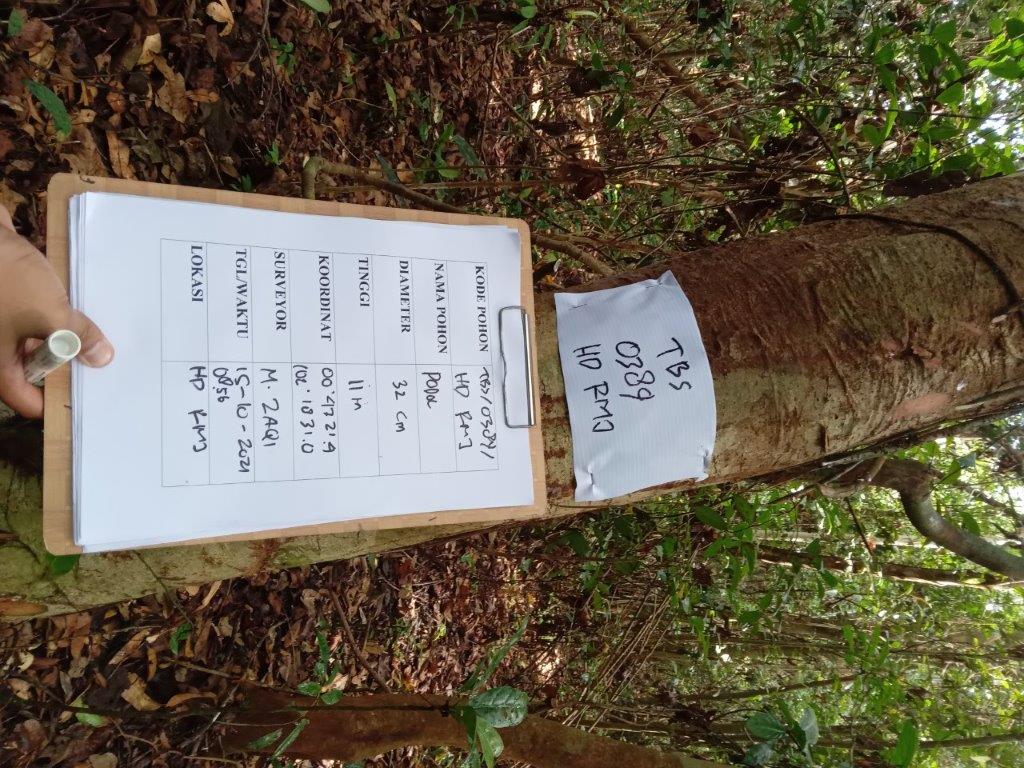 TBS
0389
HD RMJ
KODE POHON TBS/0389/
HD RMJ
NAMA POHON PODOL
DIAMETER 32 cm
TINGGI 11 m
KOORDINAT 00°47'21.9
102°1031.0
SURVEYOR M. ZAQI
TGL/WAKTU 15-10-2021
08.56
LOKASI HD RMJ